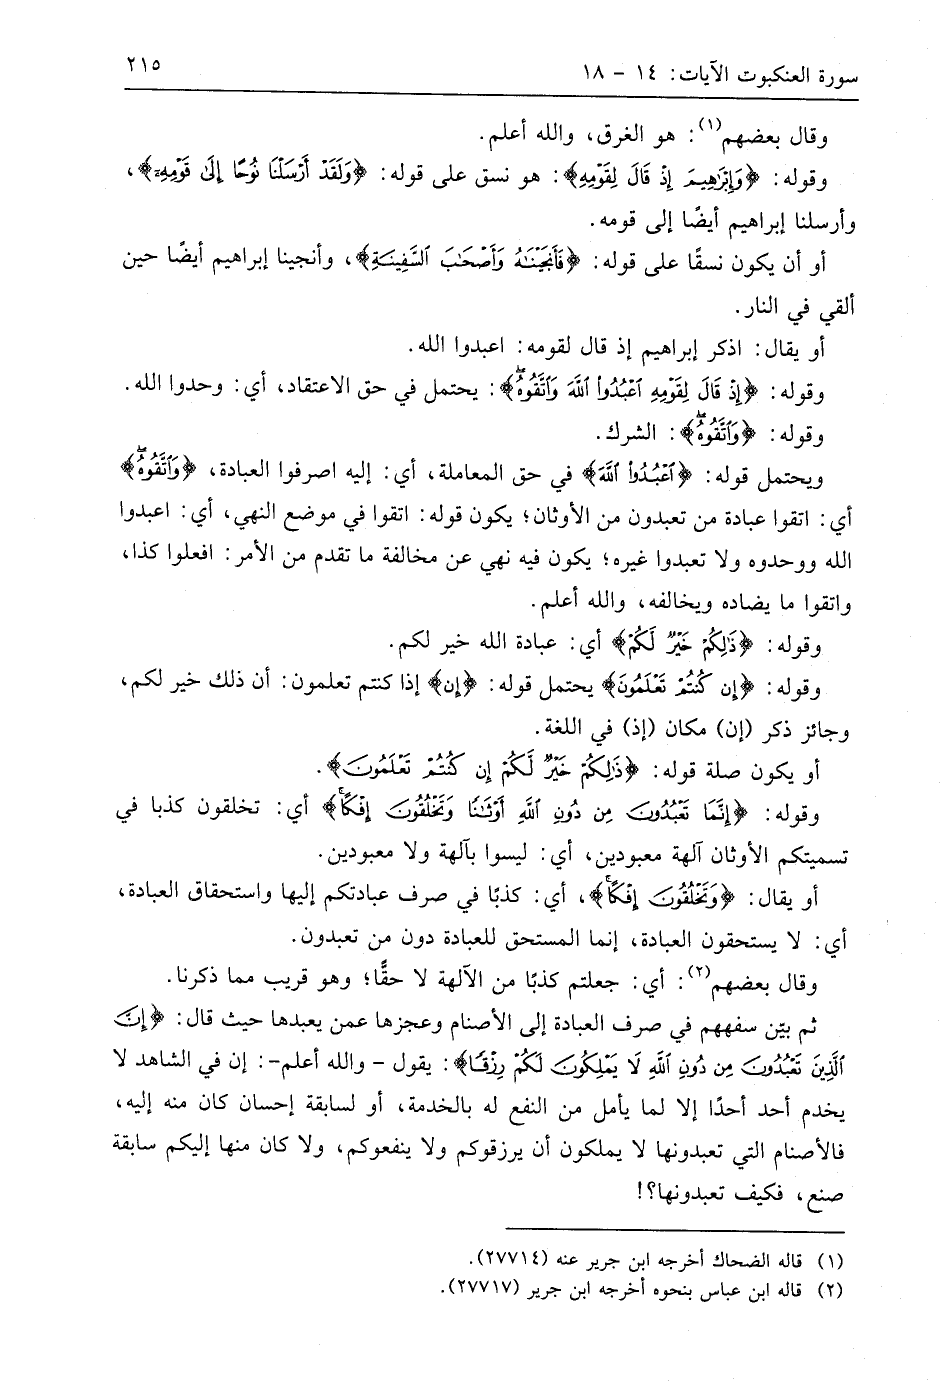 سورة العنكبوت الآيات: ١٤ - ١٨
٢١٥
وقال بعضهم(١): هو الغرق، والله أعلم.
وقوله: ﴿وَإِبْرَٰهِيمَ إِذْ قَالَ لِقَوْمِهِ﴾: هو نسق على قوله: ﴿وَلَقَدْ أَرْسَلْنَا نُوحًا إِلَىٰ قَوْمِهِۦ﴾،
وأرسلنا إبراهيم أيضًا إلى قومه.
أو أن يكون نسقًا على قوله: ﴿فَأَنجَيْنَـٰهُ وَأَصْحَـٰبَ ٱلسَّفِينَةِ﴾، وأنجينا إبراهيم أيضًا حين
ألقي في النار.
أو يقال: اذكر إبراهيم إذ قال لقومه: اعبدوا الله.
وقوله: ﴿إِذْ قَالَ لِقَوْمِهِ ٱعْبُدُوا۟ ٱللَّهَ وَٱتَّقُوهُۖ﴾: يحتمل في حق الاعتقاد، أي: وحدوا الله.
وقوله: ﴿وَٱتَّقُوهُۖ﴾: الشرك.
ويحتمل قوله: ﴿ٱعْبُدُوا۟ ٱللَّهَ﴾ في حق المعاملة، أي: إليه اصرفوا العبادة، ﴿وَٱتَّقُوهُۖ﴾
أي: اتقوا عبادة من تعبدون من الأوثان؛ يكون قوله: اتقوا في موضع النهي، أي: اعبدوا
الله ووحدوه ولا تعبدوا غيره؛ يكون فيه نهي عن مخالفة ما تقدم من الأمر: افعلوا كذا،
واتقوا ما يضاده ويخالفه، والله أعلم.
وقوله: ﴿ذَٰلِكُمْ خَيْرٌ لَّكُمْ﴾ أي: عبادة الله خير لكم.
وقوله: ﴿إِن كُنتُمْ تَعْلَمُونَ﴾ يحتمل قوله: ﴿إِن﴾ إذا كنتم تعلمون: أن ذلك خير لكم،
وجائز ذكر (إن) مكان (إذ) في اللغة.
أو يكون صلة قوله: ﴿ذَٰلِكُمْ خَيْرٌ لَّكُمْ إِن كُنتُمْ تَعْلَمُونَ﴾.
وقوله: ﴿إِنَّمَا تَعْبُدُونَ مِن دُونِ ٱللَّهِ أَوْثَـٰنًا وَتَخْلُقُونَ إِفْكًاۚ﴾ أي: تخلقون كذبا في
تسميتكم الأوثان آلهة معبودين، أي: ليسوا بآلهة ولا معبودين.
أو يقال: ﴿وَتَخْلُقُونَ إِفْكًاۚ﴾، أي: كذبًا في صرف عبادتكم إليها واستحقاق العبادة،
أي: لا يستحقون العبادة، إنما المستحق للعبادة دون من تعبدون.
وقال بعضهم(٢): أي: جعلتم كذبًا من الآلهة لا حقًّا؛ وهو قريب مما ذكرنا.
ثم بيّن سفههم في صرف العبادة إلى الأصنام وعجزها عمن يعبدها حيث قال: ﴿إِنَّ
ٱلَّذِينَ تَعْبُدُونَ مِن دُونِ ٱللَّهِ لَا يَمْلِكُونَ لَكُمْ رِزْقًا﴾: يقول - والله أعلم-: إن في الشاهد لا
يخدم أحد أحدًا إلا لما يأمل من النفع له بالخدمة، أو لسابقة إحسان كان منه إليه،
فالأصنام التي تعبدونها لا يملكون أن يرزقوكم ولا ينفعوكم، ولا كان منها إليكم سابقة
صنع، فكيف تعبدونها؟!
(١) قاله الضحاك أخرجه ابن جرير عنه (٢٧٧١٤).
(٢) قاله ابن عباس بنحوه أخرجه ابن جرير (٢٧٧١٧).